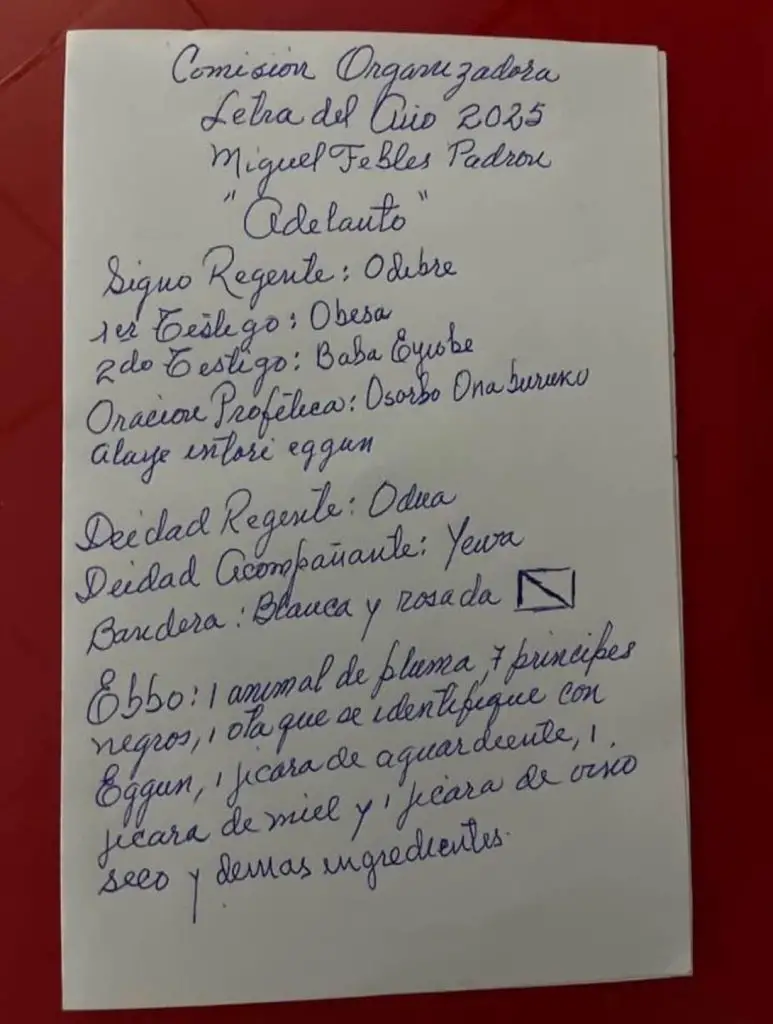 Comision Organizadora
Letra del Año 2025
Miguel Febles Padron
"Adelanto"
Signo Regente: Odibre
1er Testigo: Obesa
2do Testigo: Baba Eyiobe
Oracion Profética: Osorbo Ona buruku
alaye intori eggun
Deidad Regente: Odua
Deidad Acompañante: Yewa
Bandera: Blanca y rosada
Ebbo: 1 animal de pluma, 7 principes
negros, 1 ota que se identifique con
Eggun, 1 jicara de aguardiente, 1
jicara de miel y 1 jicara de vino
seco y demas ingredientes.